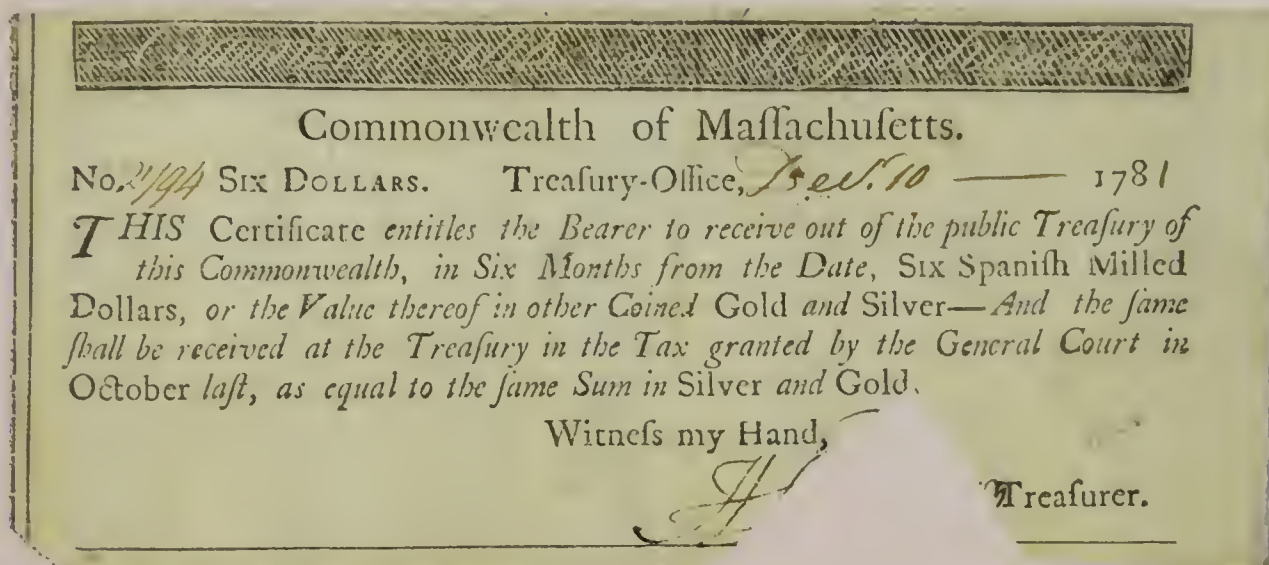 Commonwealth of Maſſachuſetts.
No. 2194 SIX DOLLARS. Treaſury-Office, Decr. 10 — 1781
THIS Certificate entitles the Bearer to receive out of the public Treaſury of
this Commonwealth, in Six Months from the Date, Six Spaniſh Milled
Dollars, or the Value thereof in other Coined Gold and Silver—And the ſame
ſhall be received at the Treaſury in the Tax granted by the General Court in
October laſt, as equal to the ſame Sum in Silver and Gold.
Witneſs my Hand,
H
Treaſurer.